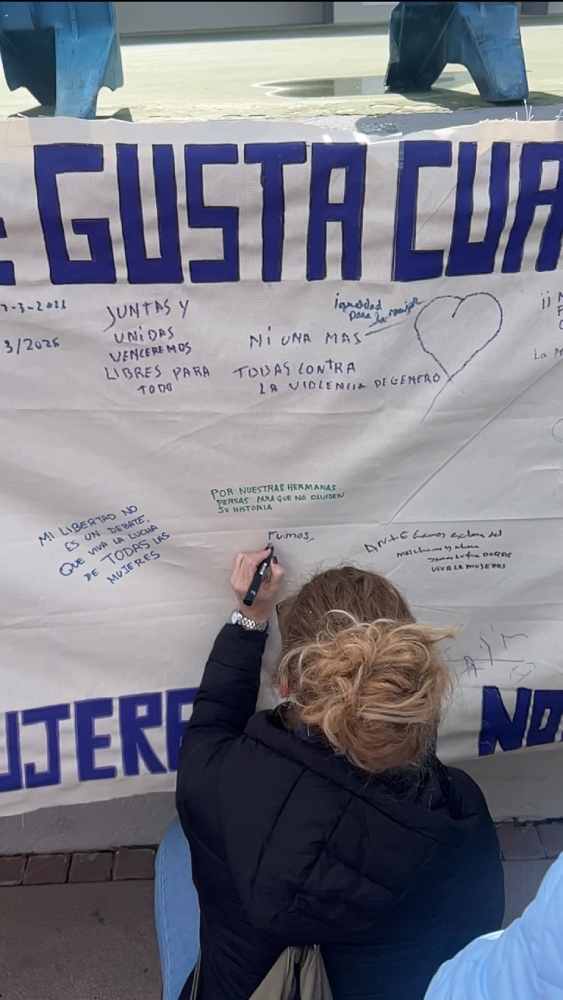 GUSTA CUA
JUNTAS Y
UNIDAS
VENCEREMOS
LIBRES PARA
TODO
igualdad
para la mujer
NI UNA MAS
TODAS CONTRA
LA VIOLENCIA DE GENERO
3/2026
¡¡
La M
POR NUESTRAS HERMANAS
PERSAS PARA QUE NO OLVIDEN
SU HISTORIA
MI LIBERTAD NO
ES UN DEBATE.
QUE VIVA LA LUCHA
DE TODAS LAS
MUJERES
Fuimos,
VIVA LA MUJERES
UJERE
NO